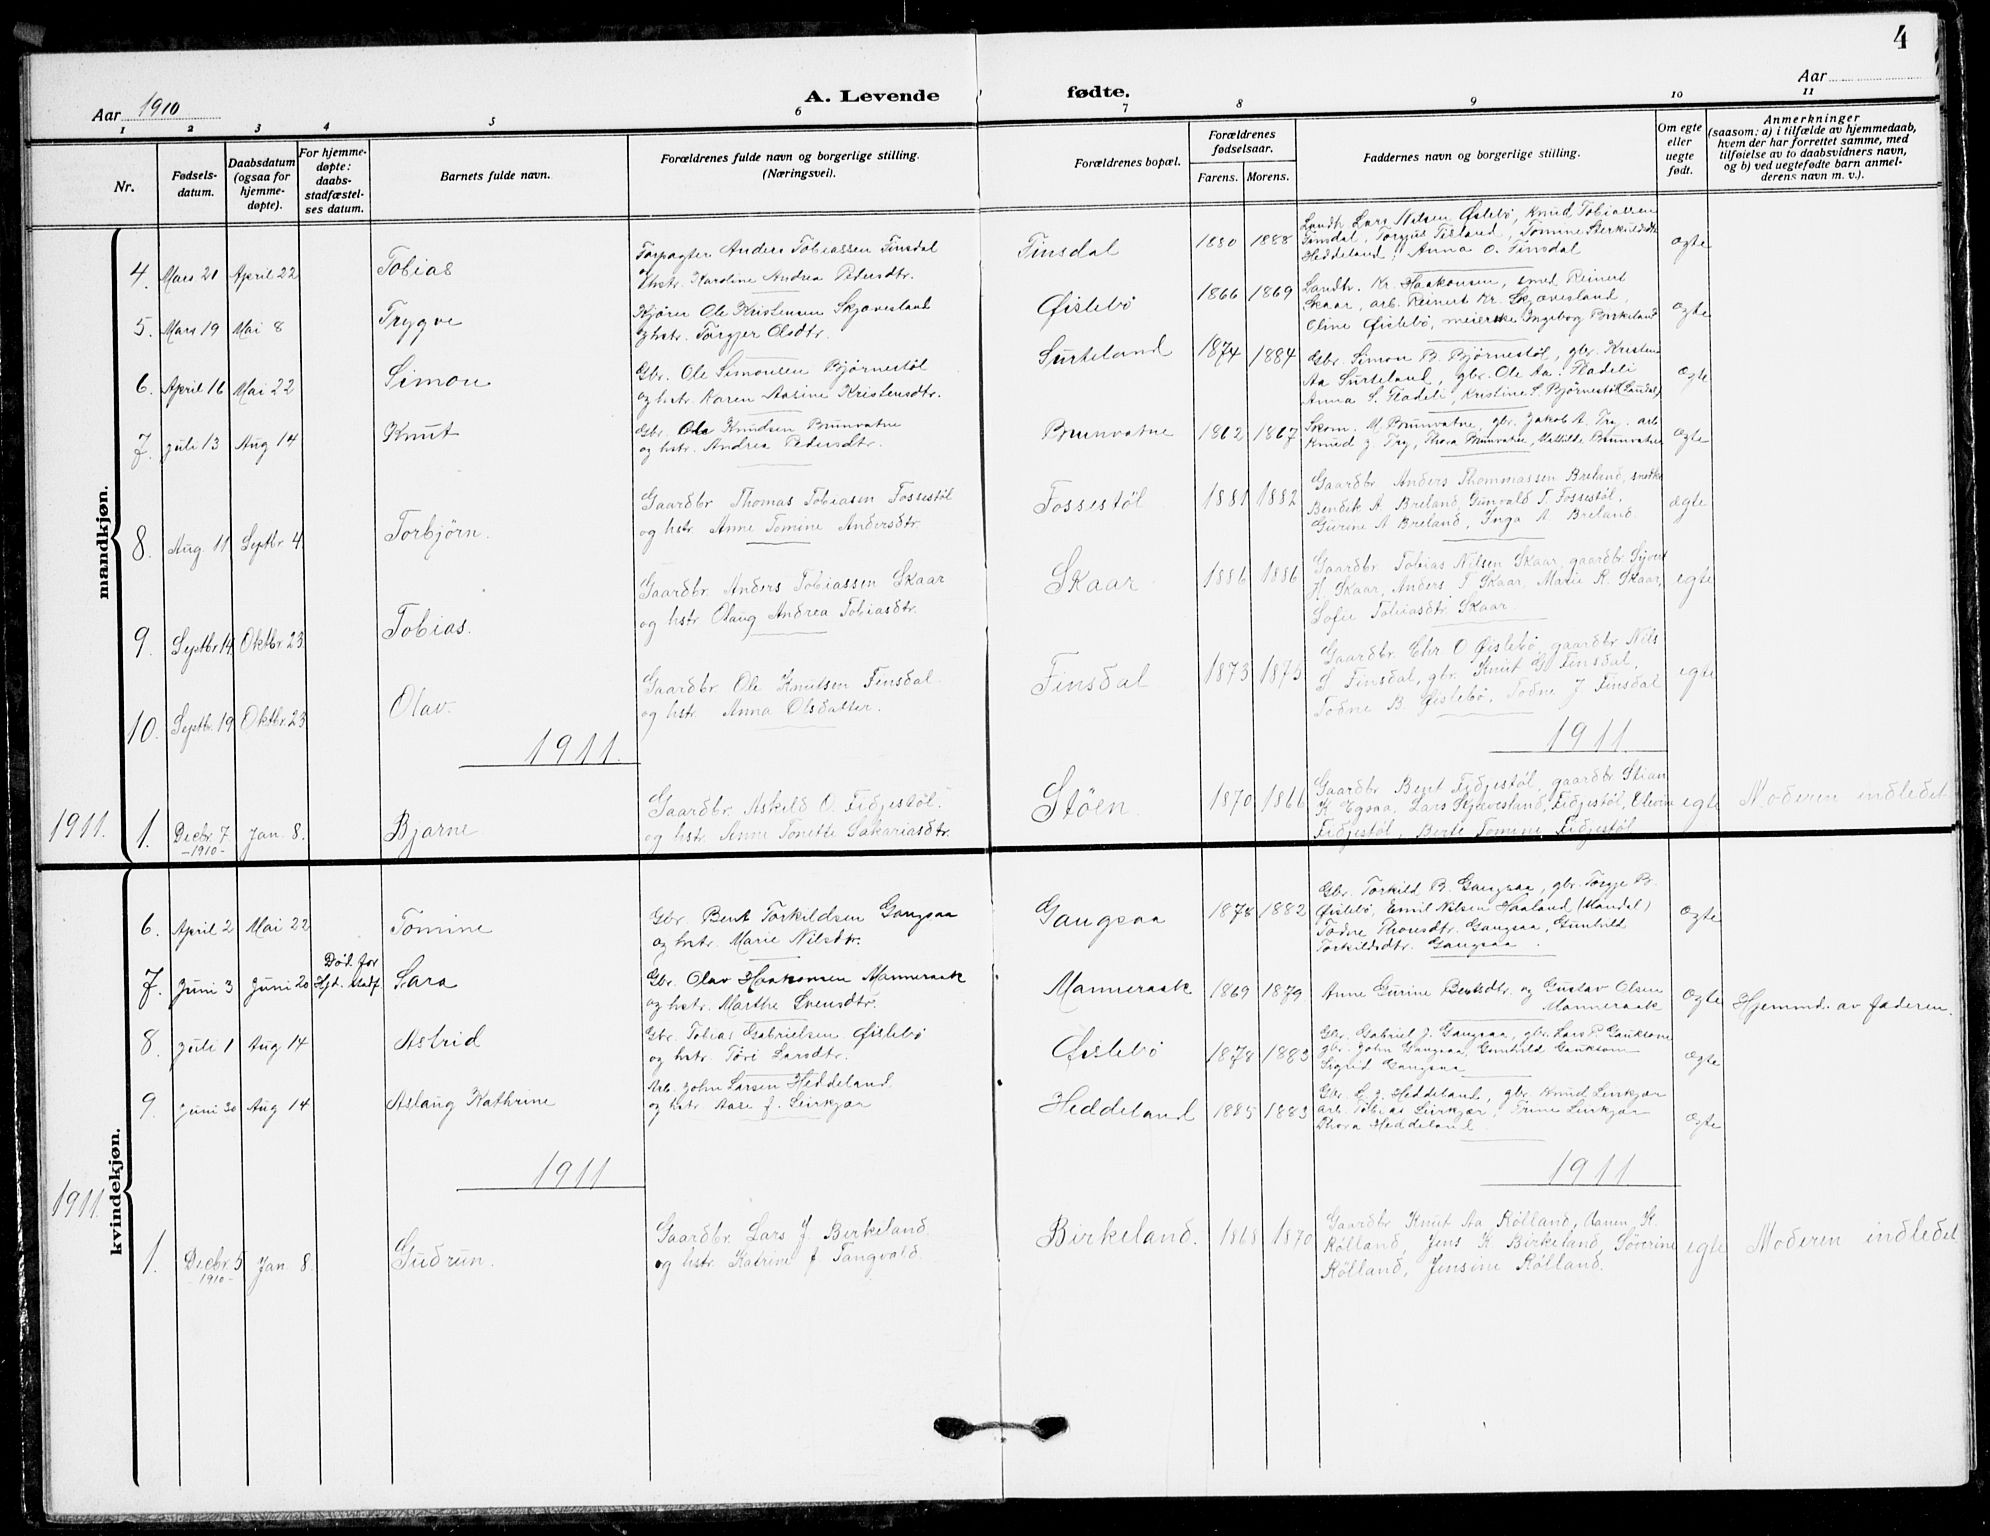 4
Aar 1910
A. Levende fødte.
Aar
1 2 3 4 5 6 7 8 9 10 11
Nr.
Fødsels-
datum.
Daabsdatum
(ogsaa for
hjemme-
døpte).
For hjemme-
døpte:
daabs-
stadfæstel-
ses datum.
Barnets fulde navn.
Forældrenes fulde navn og borgerlige stilling.
(Næringsvei).
Forældrenes bopæl.
Forældrenes
fødselsaar.
Farens. Morens.
Faddernes navn og borgerlige stilling.
Om egte
eller
uegte
født.
Anmerkninger
(saasom: a) i tilfælde av hjemmedaab,
hvem der har forrettet samme, med
tilføielse av to daabsvidners navn,
og b) ved uegtefødte barn anmel-
derens navn m. v.).
mandkjøn.
4. Mars 21 April 22 Tobias
Forpagter Anders Tobiassen Finsdal
og hstr. Karoline Andrea Pedersdtr.
Finsdal 1880 1888
Landh. Lars Nilsen Øislebø, Knud Tobiassen
Finsdal, Torjus Tisland, Tomine Sterkildsdtr
Heddeland, Anna O. Finsdal
ægte
5. Mars 19 Mai 8 Trygve
Kjører Ole Kristensen Skjævesland
og hstr. Torgjer Olsdtr.
Øislebø 1866 1869
Landh. Kr. Haakonsen, smed Reinert
Skaar, arb. Reinert Kr. Skjævesland,
Oline Øislebø, meierske Ingeborg Birkeland
ægte
6. April 16 Mai 22 Simon
Gbr. Ole Simonsen Bjørnestøl
og hstr. Karen Aasine Kristensdtr.
Surteland 1874 1884
Gbr. Simon B. Bjørnestøl, gbr. Kristen
Aa Surteland, gbr. Ole Aa. Fladeli
Anna S. Fladeli, Kristine S. Bjørnestøl (Laudal)
ægte
7. Juli 13 Aug 14 Knut
Gbr. Ole Knudsen Brunvatne
og hstr. Andrea Pedersdtr.
Brunvatne 1862 1867
Skom. M. Brunvatne, gbr. Jakob A. Try, arb
Knud J Try, Thora Brunvatne, Mathilde Brunvatne
ægte
8. Aug. 11 Septbr. 4 Torbjørn.
Gaardbr Thomas Tobiasen Fossestøl
og hstr. Anne Tomine Andersdtr.
Fossestøl 1881 1882
Gaardbr Anders Thommassen Breland, snedker
Bendik A Breland, Gunvald T. Fossestøl,
Gurine A Breland, Inga A. Breland.
ægte
9. Septbr. 14 Oktbr. 23 Tobias.
Gaardbr. Anders Tobiassen Skaar
og hstr Olaug Andrea Tobiasdtr.
Skaar 1886 1886
Gaardbr Tobias Nilsen Skaar, gaardbr. Sjvert
H. Skaar, Anders T. Skaar, Marie R. Skaar,
Sofie Tobiasdtr. Skaar
egte
10. Septbr. 19 Oktbr. 23 Olav.
Gaardbr Ole Knutsen Finsdal.
og hstr. Anna Olsdatter.
Finsdal 1873 1875
Gaardbr. Chr. O Øislebø, gaardbr Nils
S Finsdal, gbr. Knut G. Finsdal.
Todne B. Øislebø, Todne J Finsdal
egte
1911. 1911.
1911. 1. Decbr. 7 Jan. 8. Bjarne
-1910-
Gaardbr. Askeld O. Fidjestøl.
og hstr. Anne Tonette Sakariasdtr.
Støen 1870 1866
Gaardbr Bent Fidjestøl, gaardbr. Stian
K Egsaa, Lars Skjævesland, Fidjestøl, Olivia
Fidjestøl, Berte Tomine Fidjestøl
egte Moderen indledet
kvindekjøn.
6. April 2 Mai 22 Tomine
Gbr. Bent Torkildsen Gangsaa
og hstr. Marie Nilsdtr.
Gangsaa 1878 1882
Gbr. Torkild B. Gangsaa, gbr. Torje B.
Øislebø, Emil Nilsen Haaland (Mandal)
Todne Thorsdtr. Gangsaa, Gunhild
Torkildsdtr. Gangsaa
ægte
7. Juni 3 Juni 20 Død. før
Hjd. stadf. Sara
Gbr. Olav Haakonsen Manneraak
og hstr. Marthe Svensdtr.
Manneraak 1869 1879
Anne Gurine Bentsdtr. og Gustav Olsen
Manneraak
ægte Hjemmd. av faderen.
8. Juli 1 Aug. 14 Astrid
Gbr. Tobias Gabrielsen Øislebø
og hstr. Tøri Larsdtr.
Øislebø 1878 1883
Gbr. Gabriel J. Gangsaa, gbr. Lars P. Gauksom
gbr. John Gangsaa, Gunhild Gauksom
Sigrid Gangsaa
ægte
9. Juni 30 Aug 14 Aslaug Kathrine
Arb. John Larsen Heddeland
og hstr. Aase J. Leirkjær
Heddeland 1885 1883
Gbr. L. J. Heddeland, gbr. Knud Leirkjær
arb. Tobias Leirkjær, Trine Leirkjær
Thora Heddeland
ægte
1911 1911
1911. 1. Decbr. 5 Jan 8. Gudrun.
-1910-
Gaardbr. Lars J. Birkeland.
og hstr. Katrine J Tangvald.
Birkeland. 1868 1870
Gaardbr Knut Aa. Rølland, Aanen K.
Rølland, Jens K Birkeland, Søverine
Rølland, Jensine Rølland.
egte Moderen indledet